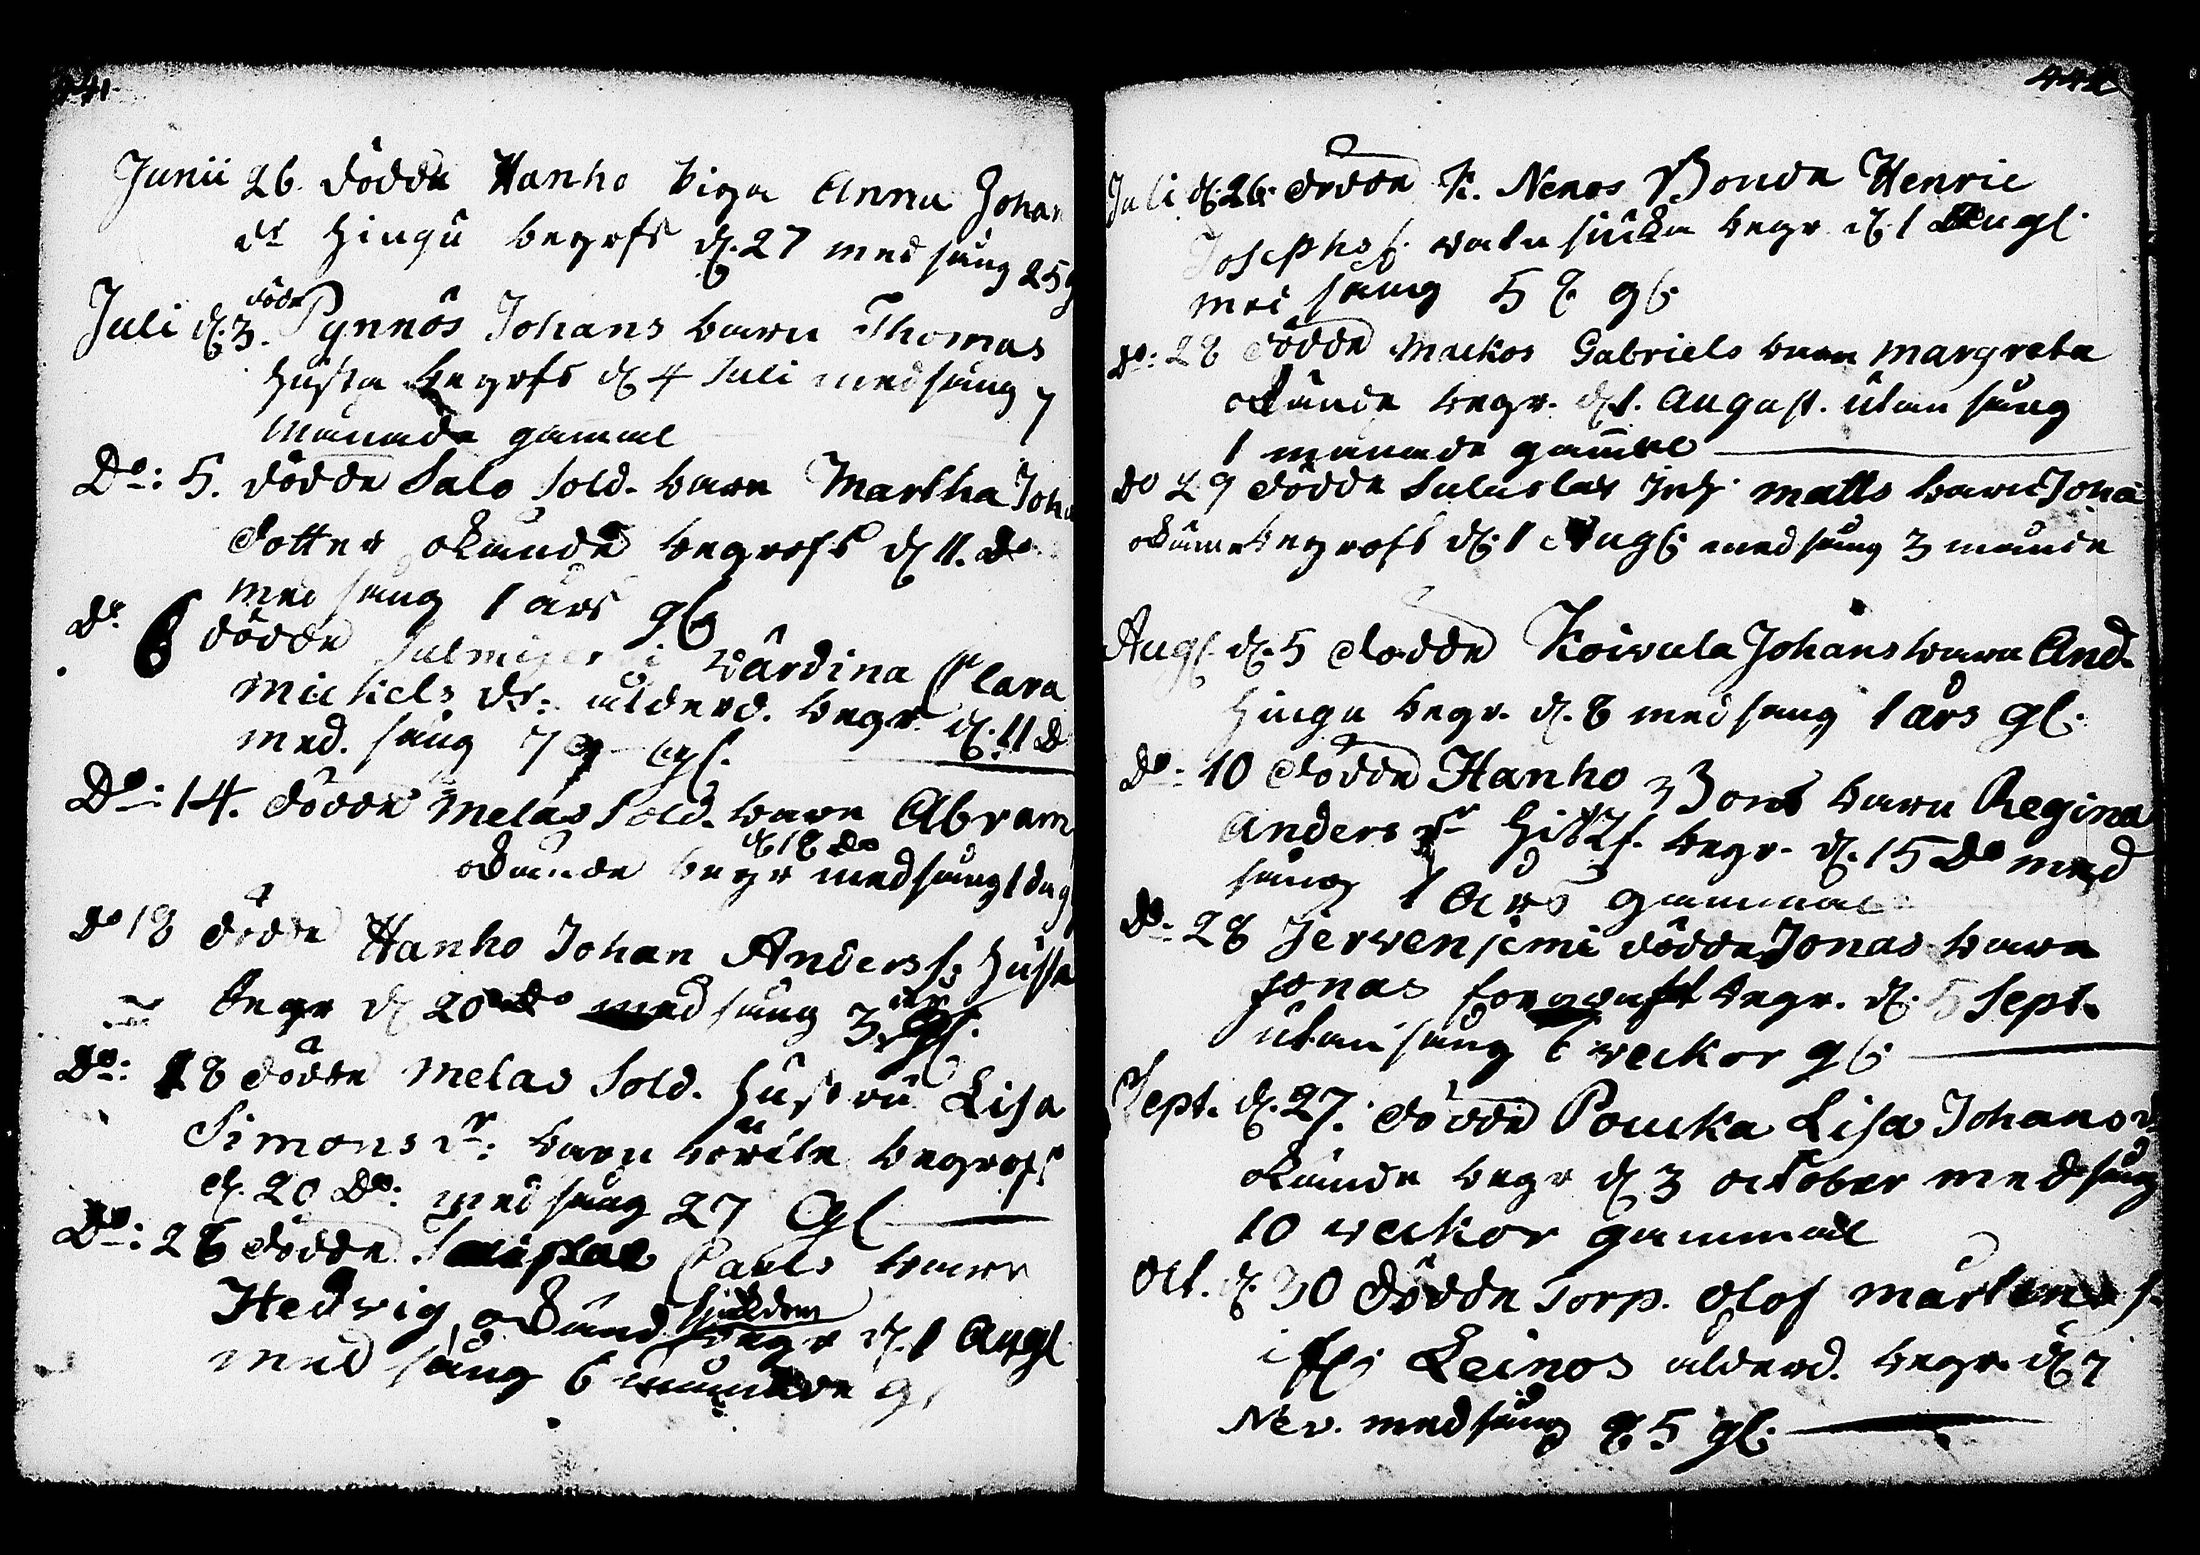 441.
Junii 26. dödde Hanho piga Anna Johan
dr hingu begrofs d. 27 med sång 25 g
Juli d. 3. dödde Pynnös Johans barn Thomas
husta begrofs d 4 Juli med sång 7
månade gamal
Do: 5. dödde Salo sold. barn Martha Joh
dotter okände begrofs d 11. do
med sång 1 års gl
do 6 dödde wärdina Clara
Michels dr: ålderd. begr. d. 11 d
med. sång 79 gl.
Do: 14. dödde Melas sold. barn Abram
okände begr d 18 do med sång 1 dag
do 18 dödde Hanho Johan Anderss: husta
begr d 20 do med sång 3 år gl.
Do: 18 dödde Melas sold. hustru Lisa
Simons dr: barn börde begrofs
d. 20 Do: med sång 27 gl
Do: 28 dödde Pauls barn
Hedwig okänd siukdom begr d. 1 Augl
med sång 6 månade g
442
Juli d. 26. dödde K. Nenos Bonde Henric
Josephs s. watu siuka begr d. 1 Augl
med sång 58 gl.
do: 28 dödde Mackos Gabriels barn Margreta
okände begr. d 1. August. utan sång
1 månade gammal
do 29 dödde Matts barn Joha
okände begrofs d. 1 Augl. med sång 3 månde
Augl. d. 5 dödde Koivula Johans barn And.
hingu begr. d. 8 med sång 1 års gl.
do: 10 dödde Hanho Bond barn Regina
Anders dr begr. d. 15 do med
sång 1 års gammal
do: 28 Jerwensemi dödde Jonas barn
Jonas begr. d. 5 Sept.
utan sång 6 weckor gl.
Sept. d. 27. dödde Poucka Lisa Johans d
okände begr d 3 october med sång
10 weckor gammal
Oct. d. 30 dödde Torp. Olof Mårtens s.
Leinos ålderd. begr d 7
Nov. med sång 85 gl.